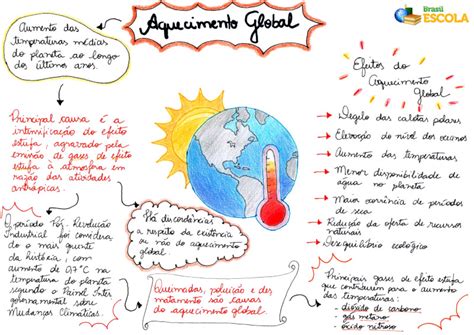 Aquecimento Global
Brasil
ESCOLA
Aumento das
temperaturas médias
do planeta ao longo
dos últimos anos.
Principal causa é a
intensificação do efeito
estufa, agravado pela
emissão de gases de efeito
estufa à atmosfera em
razão das atividades
antrópicas.
O período Pós-Revolução
Industrial foi considera
do o mais quente
da história, com
aumento de 0,7°C na
temperatura do planeta
segundo o Painel Inter
governamental sobre
Mudanças Climáticas.
Há discordâncias
a respeito da existência
ou não do aquecimento
global.
Queimadas, poluição e des
matamento são causas
do aquecimento global.
Efeitos do
Aquecimento
Global
Degelo das calotas polares
Elevação do nível dos oceanos
Aumento das temperaturas
Menor disponibilidade de
água no planeta
Maior ocorrência de períodos
de seca
Redução da oferta de recursos
naturais
Desequilíbrio ecológico
Principais gases do efeito estufa
que contribuem para o aumento
das temperaturas:
dióxido de carbono
gás metano
óxido nitroso